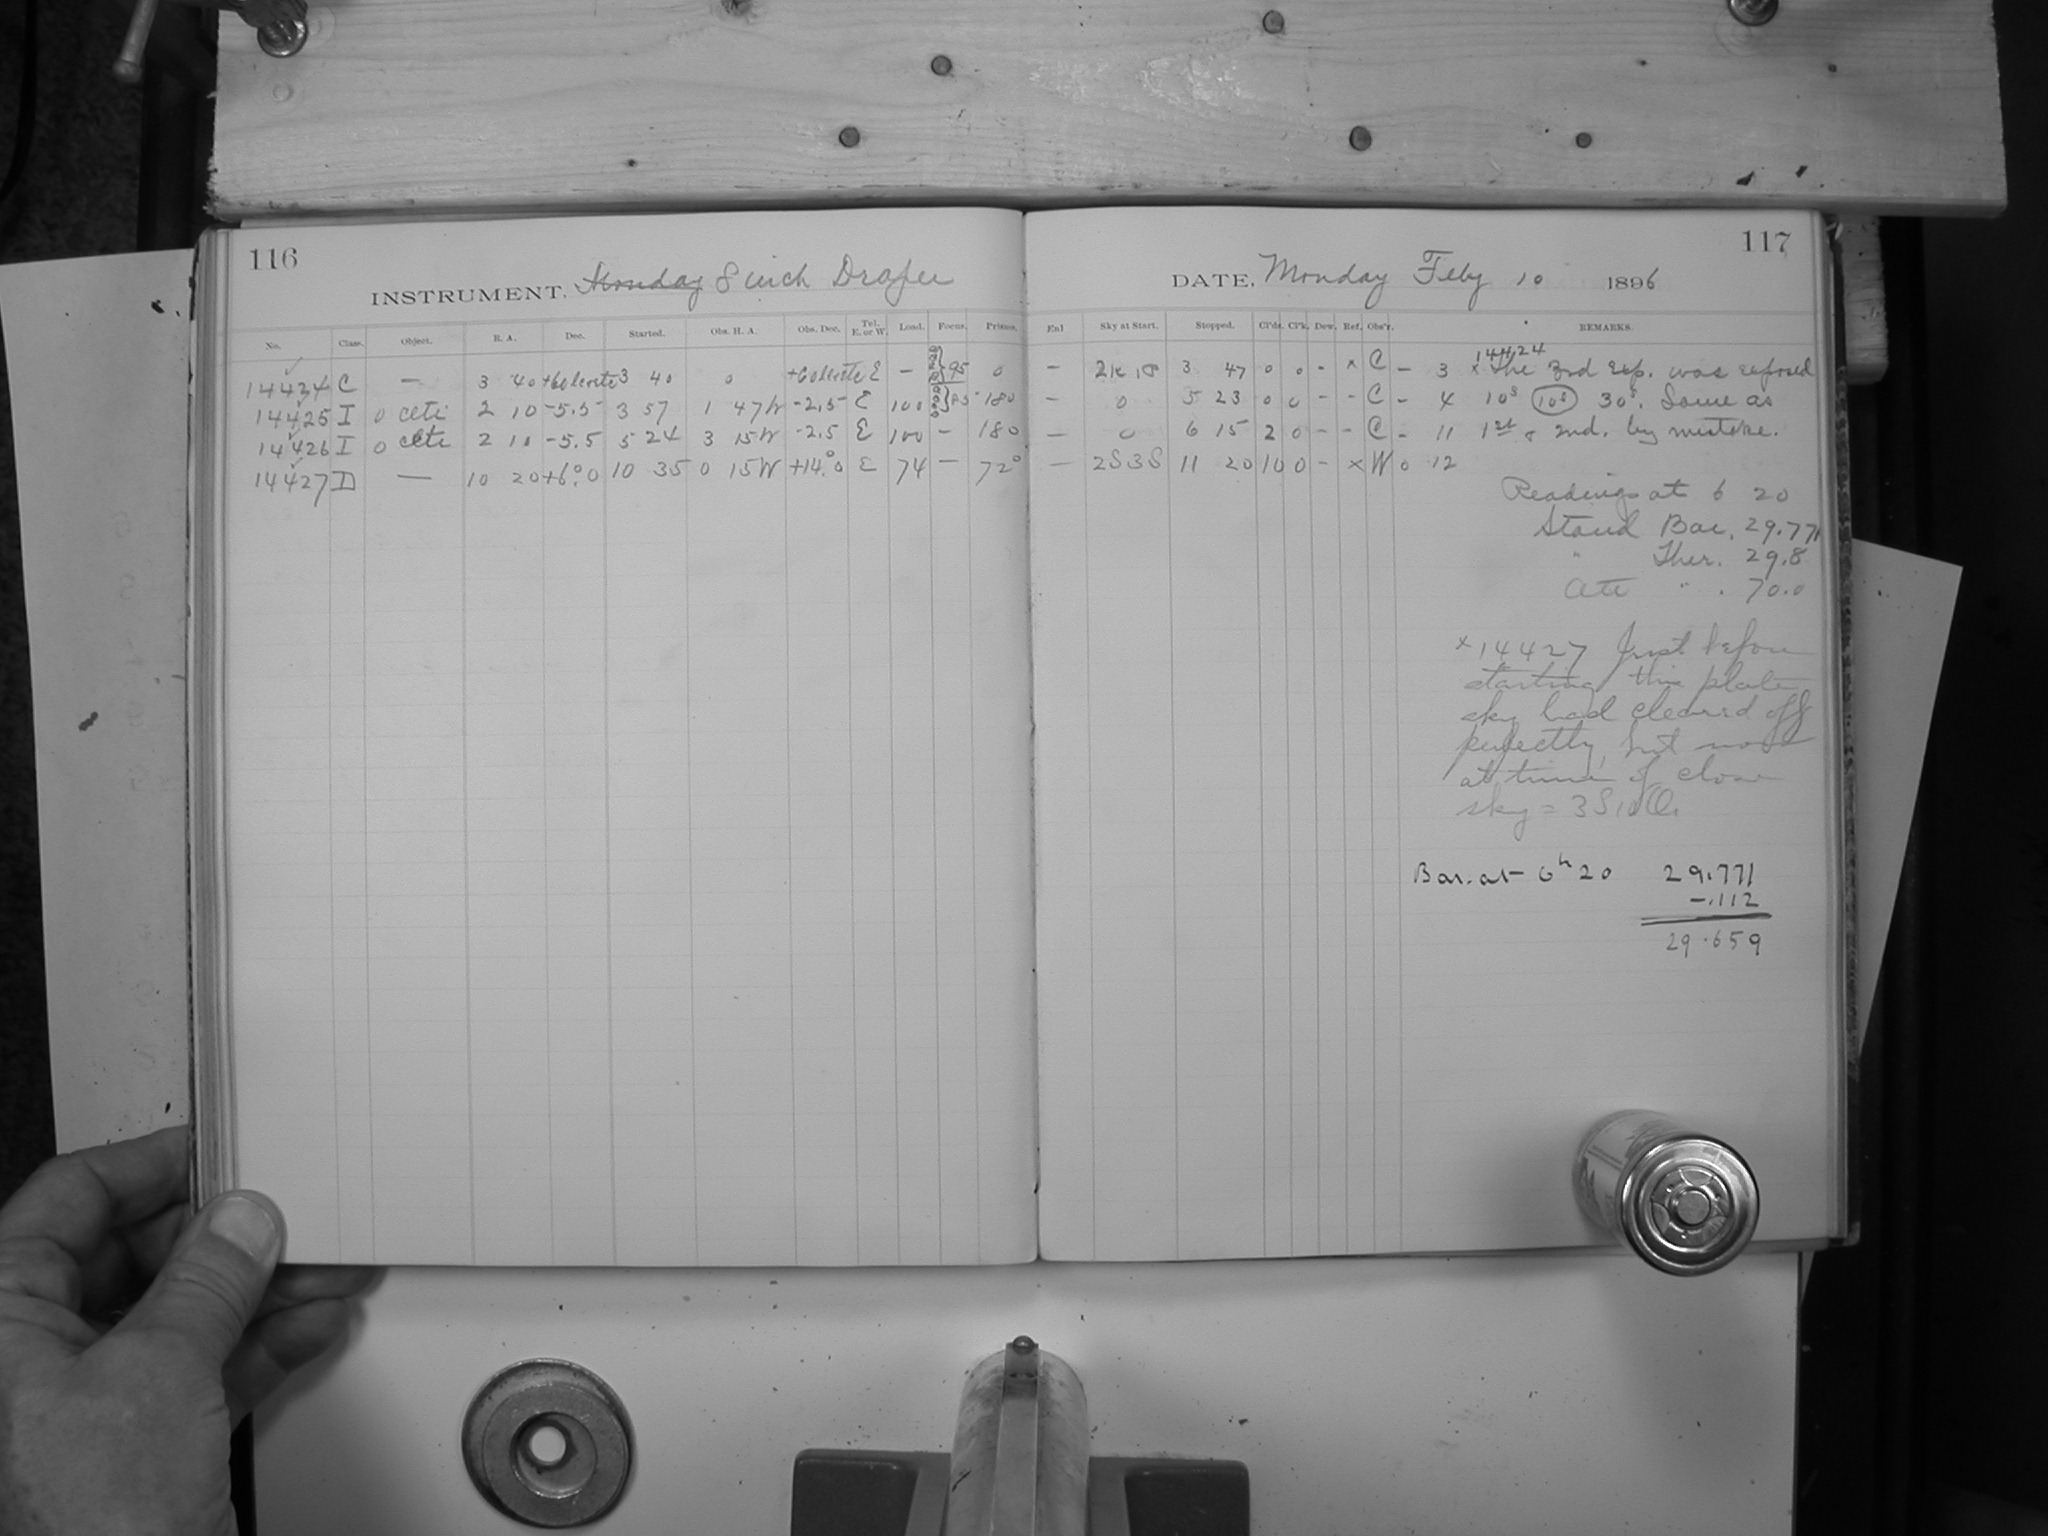 116
INSTRUMENT. Monday 8 inch Draper
No. Class. Object. R. A. Dec. Started. Obs. H. A. Obs. Dec. Tel. E. or W. Load. Focus. Prisms.
14424 C — 3 40 3 40 0 E — 95 0
14425 I o ceti 2 10 -5.5 3 57 1 47W -2.5 E 100 180
14426 I o ceti 2 10 -5.5 5 24 3 15W -2.5 E 100 - 180
14427 D — 10 20 +6°.0 10 35 0 15W +14°.0 E 74 - 72°
117
DATE, Monday Feby 10 1896
Enl Sky at Start. Stopped. Cl'ds. Cl'k. Dew. Ref. Obs'r. REMARKS.
— 3 47 0 0 - x C - 3 x 14424 The 3rd Exp. was exposed
— 0 5 23 0 0 - - C - 4 10s 10s 30s. Same as
— 0 6 15 2 0 - - C - 11 1st & 2nd. by mistake.
— 2S3S 11 20 10 0 - x W 0 12
Readings at 6 20
Stand Bar. 29.771
" Ther. 29.8
Att " . 70.0
x 14427 Just before
starting this plate
sky had cleared off
perfectly, but now
at time of close
sky = 3S10
Bar. at 6h 20 29.771
-.112
29.659